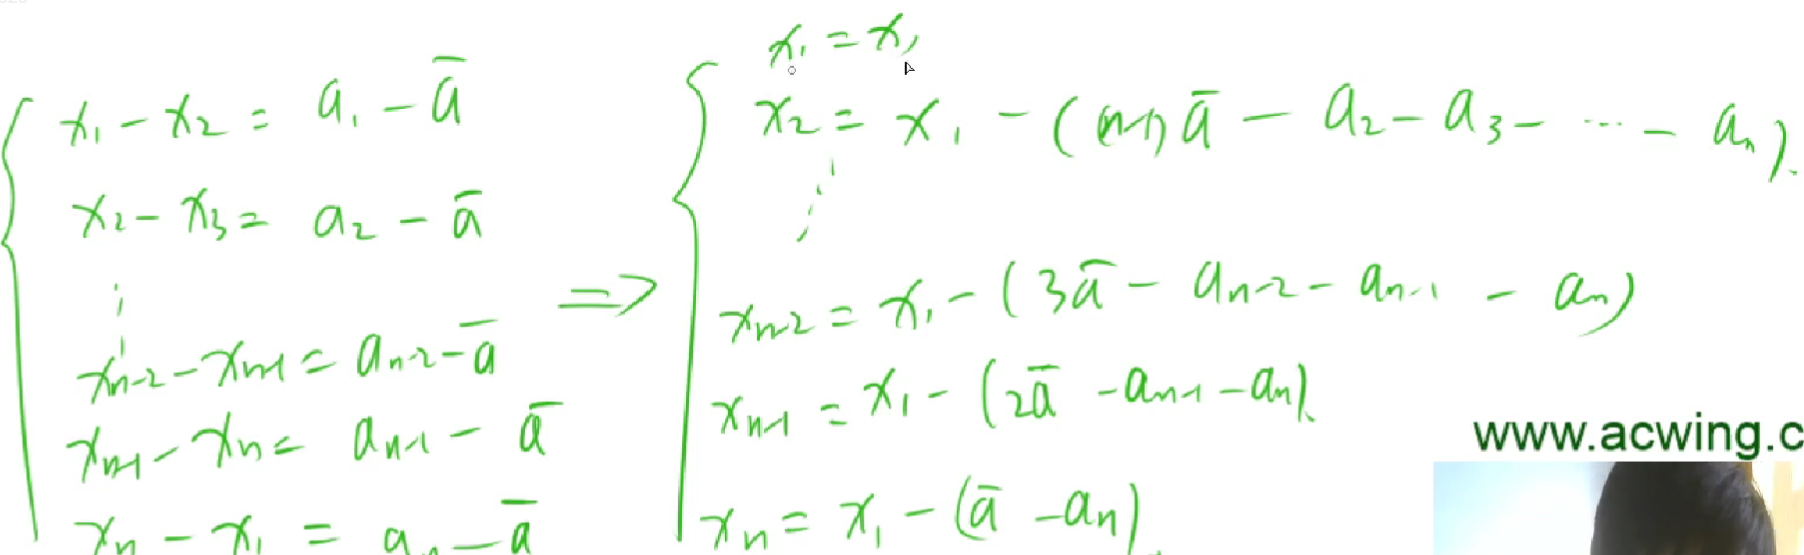 x₁ - x₂ = a₁ - ā
x₂ - x₃ = a₂ - ā
⋮
xₙ₋₂ - xₙ₋₁ = aₙ₋₂ - ā
xₙ₋₁ - xₙ = aₙ₋₁ - ā
xₙ - x₁ = aₙ - ā
⇒
x₁ = x₁
x₂ = x₁ - ((n-1)ā - a₂ - a₃ - ... - aₙ).
⋮
xₙ₋₂ = x₁ - (3ā - aₙ₋₂ - aₙ₋₁ - aₙ)
xₙ₋₁ = x₁ - (2ā - aₙ₋₁ - aₙ).
xₙ = x₁ - (ā - aₙ).
www.acwing.c